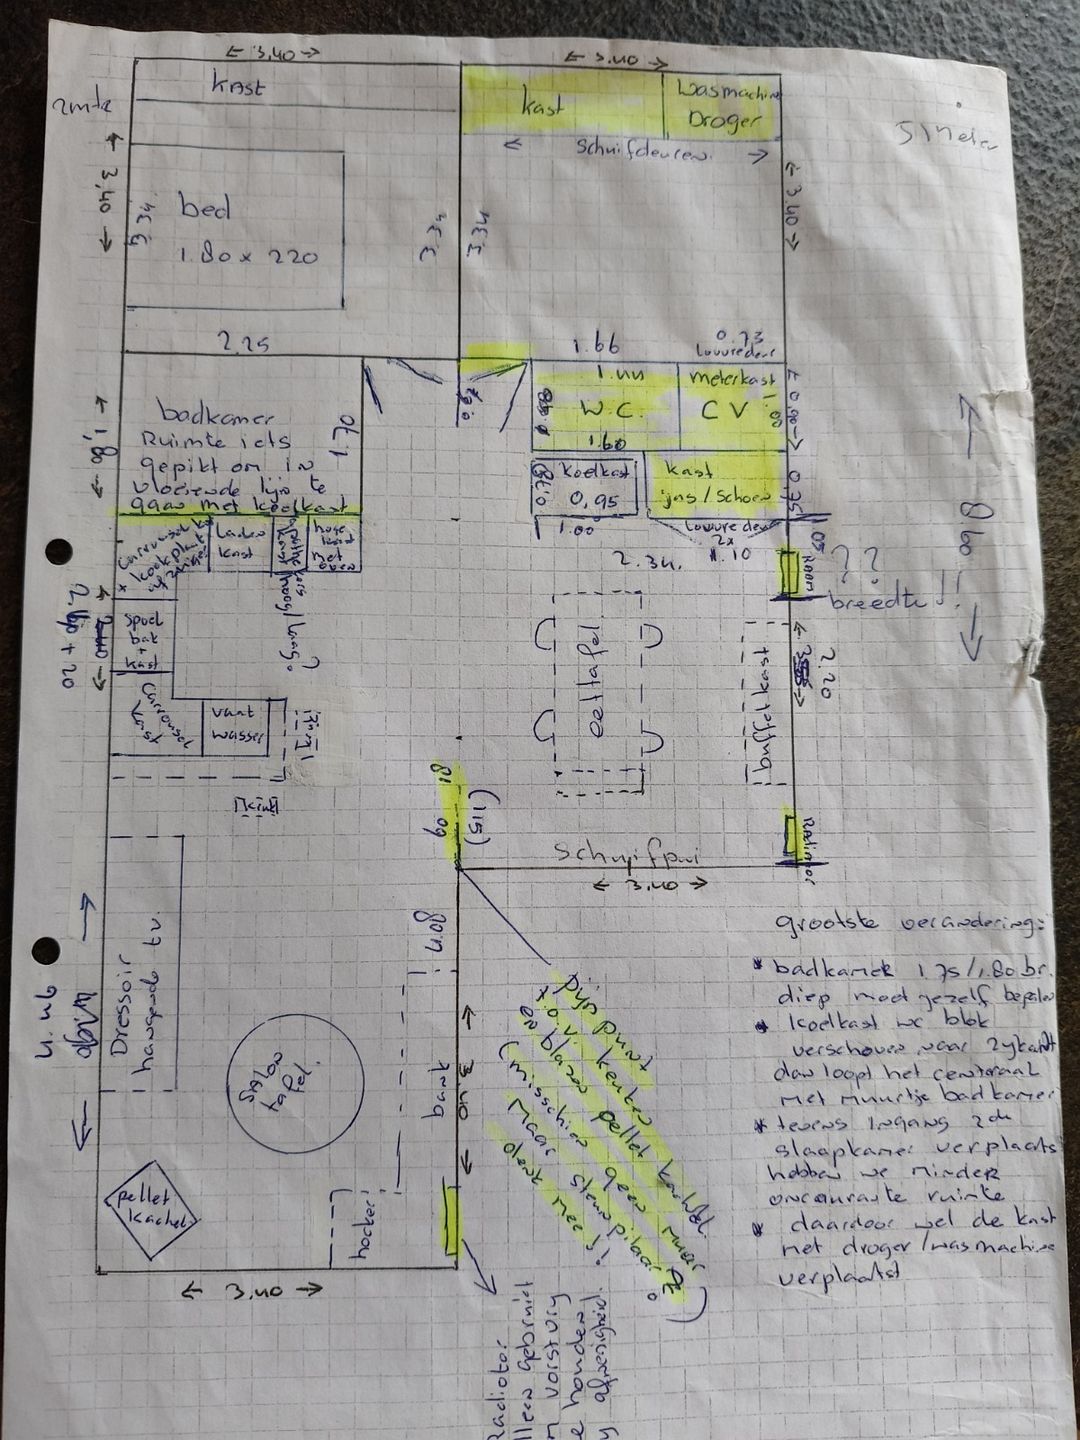 3,40
3.40
kast
kast
wasmachine
Droger
Schuifdeuren
3,40
3.34
bed
1.80 x 220
3.34
3.34
3.40
2.25
1.66
0.73
louvredeur
badkamer
Ruimte iets
gepikt om in
vloeiende lijn te
gaan met koelkast
1.70
1,80
W.C.
1.60
meterkast
CV
1.00
koelkast
0,95
1.00
kast
jas/schoen
0,35
louvredeur
2x
1.10
2.34.
Raam
??
breedte!!
8,60
carrousel
kookplaat
laden
kast
hoge
kast
met
oven
hoog/laag?
spoel
bak
+
kast
carrousel
kast
vaat
wasser
eettafel
buffetkast
2.20
81
60
(151)
Schuifpui
3,40
Radiator
Dressoir
hangende tv
salon
tafel
4.08
bank
pellet
kachel
hocker
3,40
pijnpunt
t.o.v. keuken
en blazen pellet kachel.
(misschien geen muur
maar steunpilaar?
denk mee!
Radiator
om vorstvrij
honden
afwezigheid.
grootste verandering:
* badkamer 1.75/1.80 br.
diep moet jezelf bepalen
* koelkast wc blok
verschoven naar zijkant
dan loopt het centraal
met muurtje badkamer
* tevens ingang 2de
slaapkamer verplaatst
hebben we minder
oncourante ruimte
* daardoor wel de kast
met droger/wasmachine
verplaatst